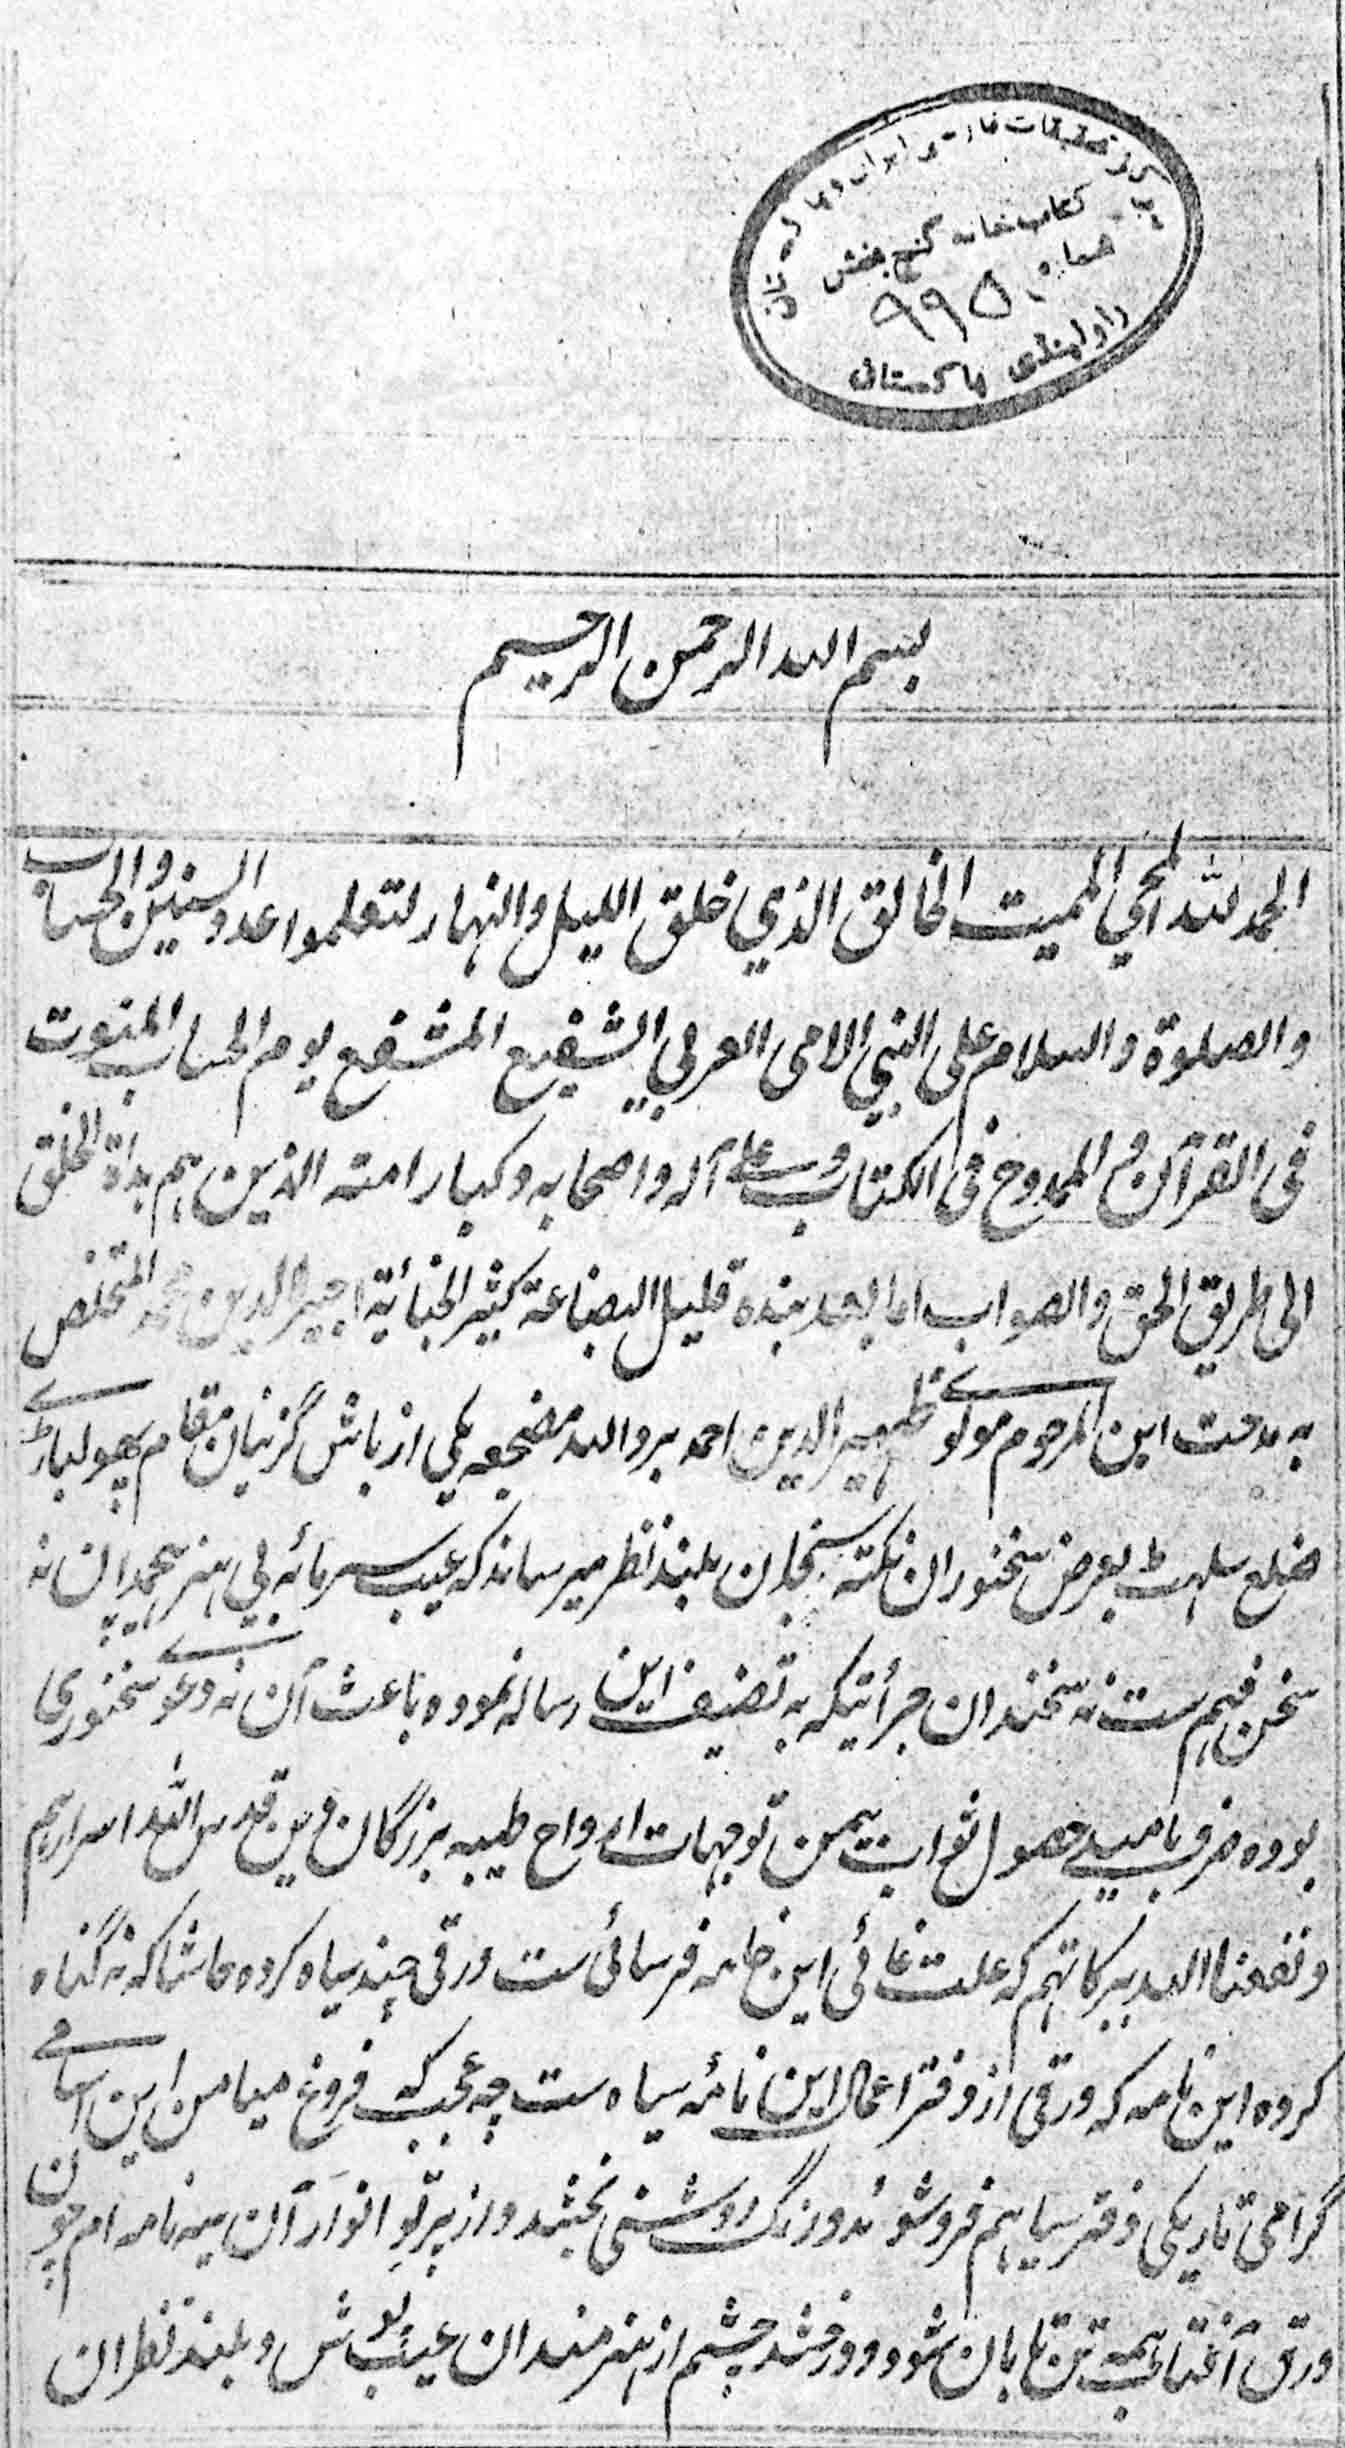 مرکز تحقیقات فارسی ایران و پاکستان
کتابخانه گنج بخش
شماره ۹۹۵
راولپندی پاکستان
بسم الله الرحمن الرحیم
الحمد لله المحی الممیت الخالق الذی خلق اللیل والنهار لتعلموا عدد السنین والحساب
والصلوة والسلام علی النبی الامی العربی الشفیع المشفع یوم الحساب المنعوت
فی القرآن و الممدوح فی الکتاب و علی آله واصحابه وکبار امته الذین هم هداة الخلق
الی طریق الحق والصواب اما بعد بنده قلیل البضاعة کثیر الجنائیة الدین محمد المتخلص
به مدحت ابن المرحوم مولوی ظهیر الدین احمد برد الله مضجعه یکی از باش گزینان مقام پهولباڑی
ضلع سلهٹ بعرض سخنوران نکته سنجان بلند نظر میرساند که عیب سرمائه بی هنر هیچمدان نه
سخن فهم ست نه سخندان جرأتیکه به تصنیف این رساله نموده باعث آن نه دعوی سخنوری
بوده صرف بامید حصول ثواب بیمن توجهات ارواح طیبه بزرگان دین قدس الله اسرارهم
و نفعنا الله ببرکاتهم که علت غائی این خامه فرسائی ست ورقی چند سیاه کرده حاشا که نه گناه
کرده این نامه که ورقی از دفتر اعمال این نامهٔ سیاه ست چه عجب که فروغ میامن این اسامی
گرامی تاریکی دفتر سیاهم فروشوید و رنگ روشنی بخشد و از پرتو انوار آن سیه نامه ام چون
ورق آفتاب همه تن تابان شود و درخشد چشم از هنرمندان عیب پوش و بلند نظران